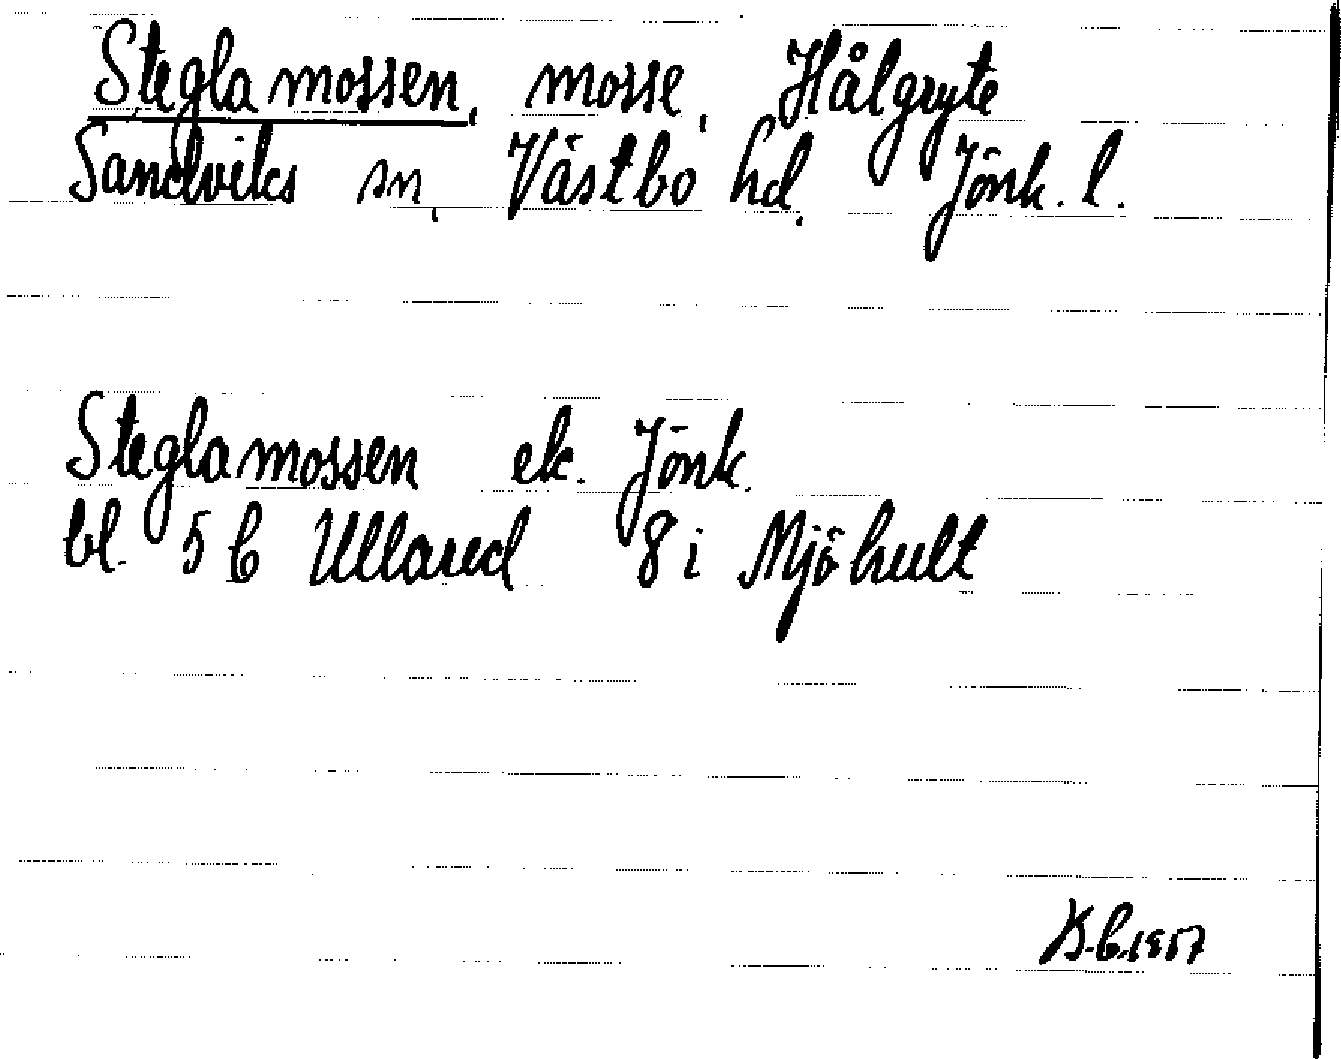 Steglamossen, mosse, Hålgryte
Sandviks sn, Västbo hd, Jönk. l.
Steglamossen ek. Jönk.
bl. 5 C Ullared 8 i Mjöhult